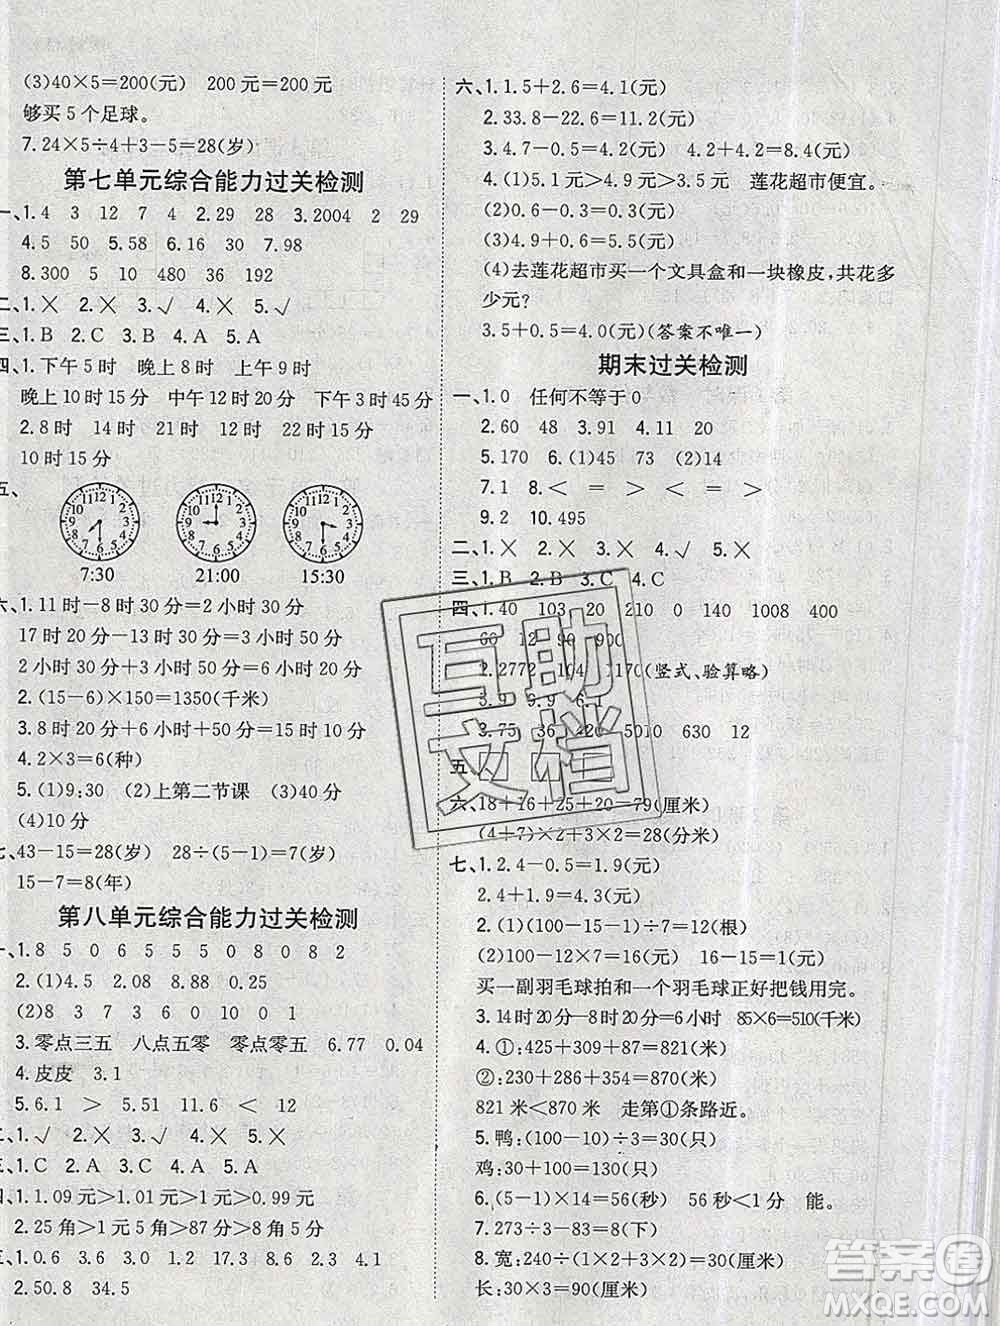 (3)40×5=200(元)　200元=200元
够买5个足球。
7.24×5÷4+3-5=28(岁)
第七单元综合能力过关检测
一、1.4　3　12　7　4　2.29　28　3.2004　2　29
4.5　50　5.58　6.16　30　7.98
8.300　5　10　480　36　192
二、1.×　2.×　3.√　4.×　5.√
三、1.B　2.C　3.B　4.A　5.A
四、1.下午5时　晚上8时　上午9时
晚上10时15分　中午12时20分　下午3时45分
2.8时　14时　21时30分　19时30分
10时15分
五、
7:30　21:00　15:30
六、1.11时-8时30分=2小时30分
17时20分-14时50分=2小时30分
2小时30分+2小时30分=5小时
2.(15-6)×150=1350(千米)
3.8时20分+1小时50分=10时10分
4.2×3=6(种)
5.(1)9:30　(2)上第二节课　(3)40分
(4)10分
七、43-15=28(岁)　28÷(5-1)=7(岁)
15-7=8(年)
第八单元综合能力过关检测
一、1.8　5　0　6　5　5　5　0　8　0　8　2
2.(1)4.15　2.08　0.89　1.23
(2)8　3　7　3　6　0　10　0　1
3.零点三五　八点五零　零点零五　6.77　0.04
4.皮皮　3.1
5.6.1　＞　5.51　11.6　＜　12
二、1.√　2.×　3.×　4.×　5.×
三、1.C　2.A　3.A　4.C　5.A
四、1.1.09元＞1.01元＞1元＞0.99元
2.25角＞1元5角＞87分＞8角5分
三、1.0.6　3.6　3.0　1.2　17.3　2.6　3.4
2.50.8　34.5
六、1.1.5+2.6=4.1(元)
2.33.8-22.6=11.2(元)
3.4.7-0.5=4.2(元)　4.2+4.2=8.4(元)
4.(1)5.1元＞4.9元＞3.5元　莲花超市便宜。
(2)0.6-0.3=0.3(元)
(3)4.9-0.5=4.4(元)
(4)去莲花超市买一个文具盒和一块橡皮，共花多
少元？
3.5+0.5=4.0(元)(答案不唯一)
期末过关检测
一、1.0　任何不等于0
2.60　48　3.91　4.11　20
5.170　6.(1)45　73　(2)14
7.1　8.＜　=　＜　＞　=　＞
9.2　10.495
二、1.×　2.×　3.×　4.√　5.×
三、1.B　2.B　3.C　4.C
四、1.40　103　20　210　0　140　1008　400
60　12　90　900
2.2772　104　1170(竖式、验算略)
3.9　9.9　6.1
3.75　36　420　5010　630　12
五、
六、18+16+25+20=79(厘米)
(4+7)×2+3×2=28(分米)
七、1.2.4-0.5=1.9(元)
2.4+1.9=4.3(元)
2.(1)(100-16)÷7=12(根)
(2)100-12×7=16(元)　16-15=1(元)
买一副羽毛球拍和一个羽毛球正好把钱用完。
3.14时20分-8时20分=6小时　85×6=510(千米)
4.①:425+309+87=821(米)
②:230+286+354=870(米)
821米＜870米　走第①条路近。
5.鸭:(100-10)÷3=30(只)
鸡:30+100=130(只)
6.(5-1)×14=56(秒)　56秒＜1分　能。
7.273÷3-83=8(下)
8.宽:240÷(1×2+3×2)=30(厘米)
长:30×3=90(厘米)
互助
文档
答案圈
MXQE.COM